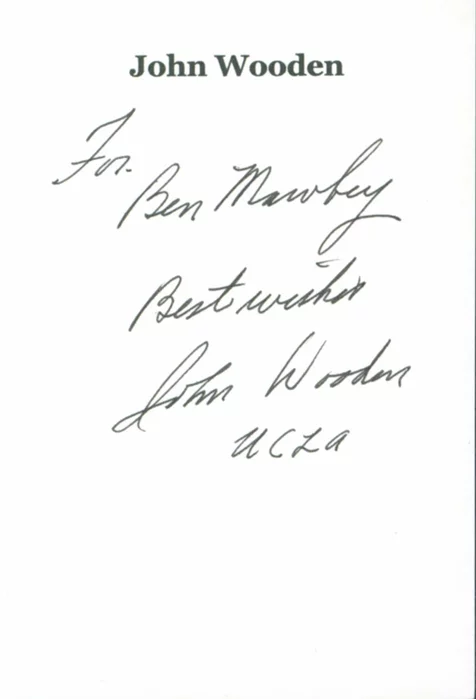 John Wooden
For
Ben Mawbey
Best wishes
John Wooden
UCLA